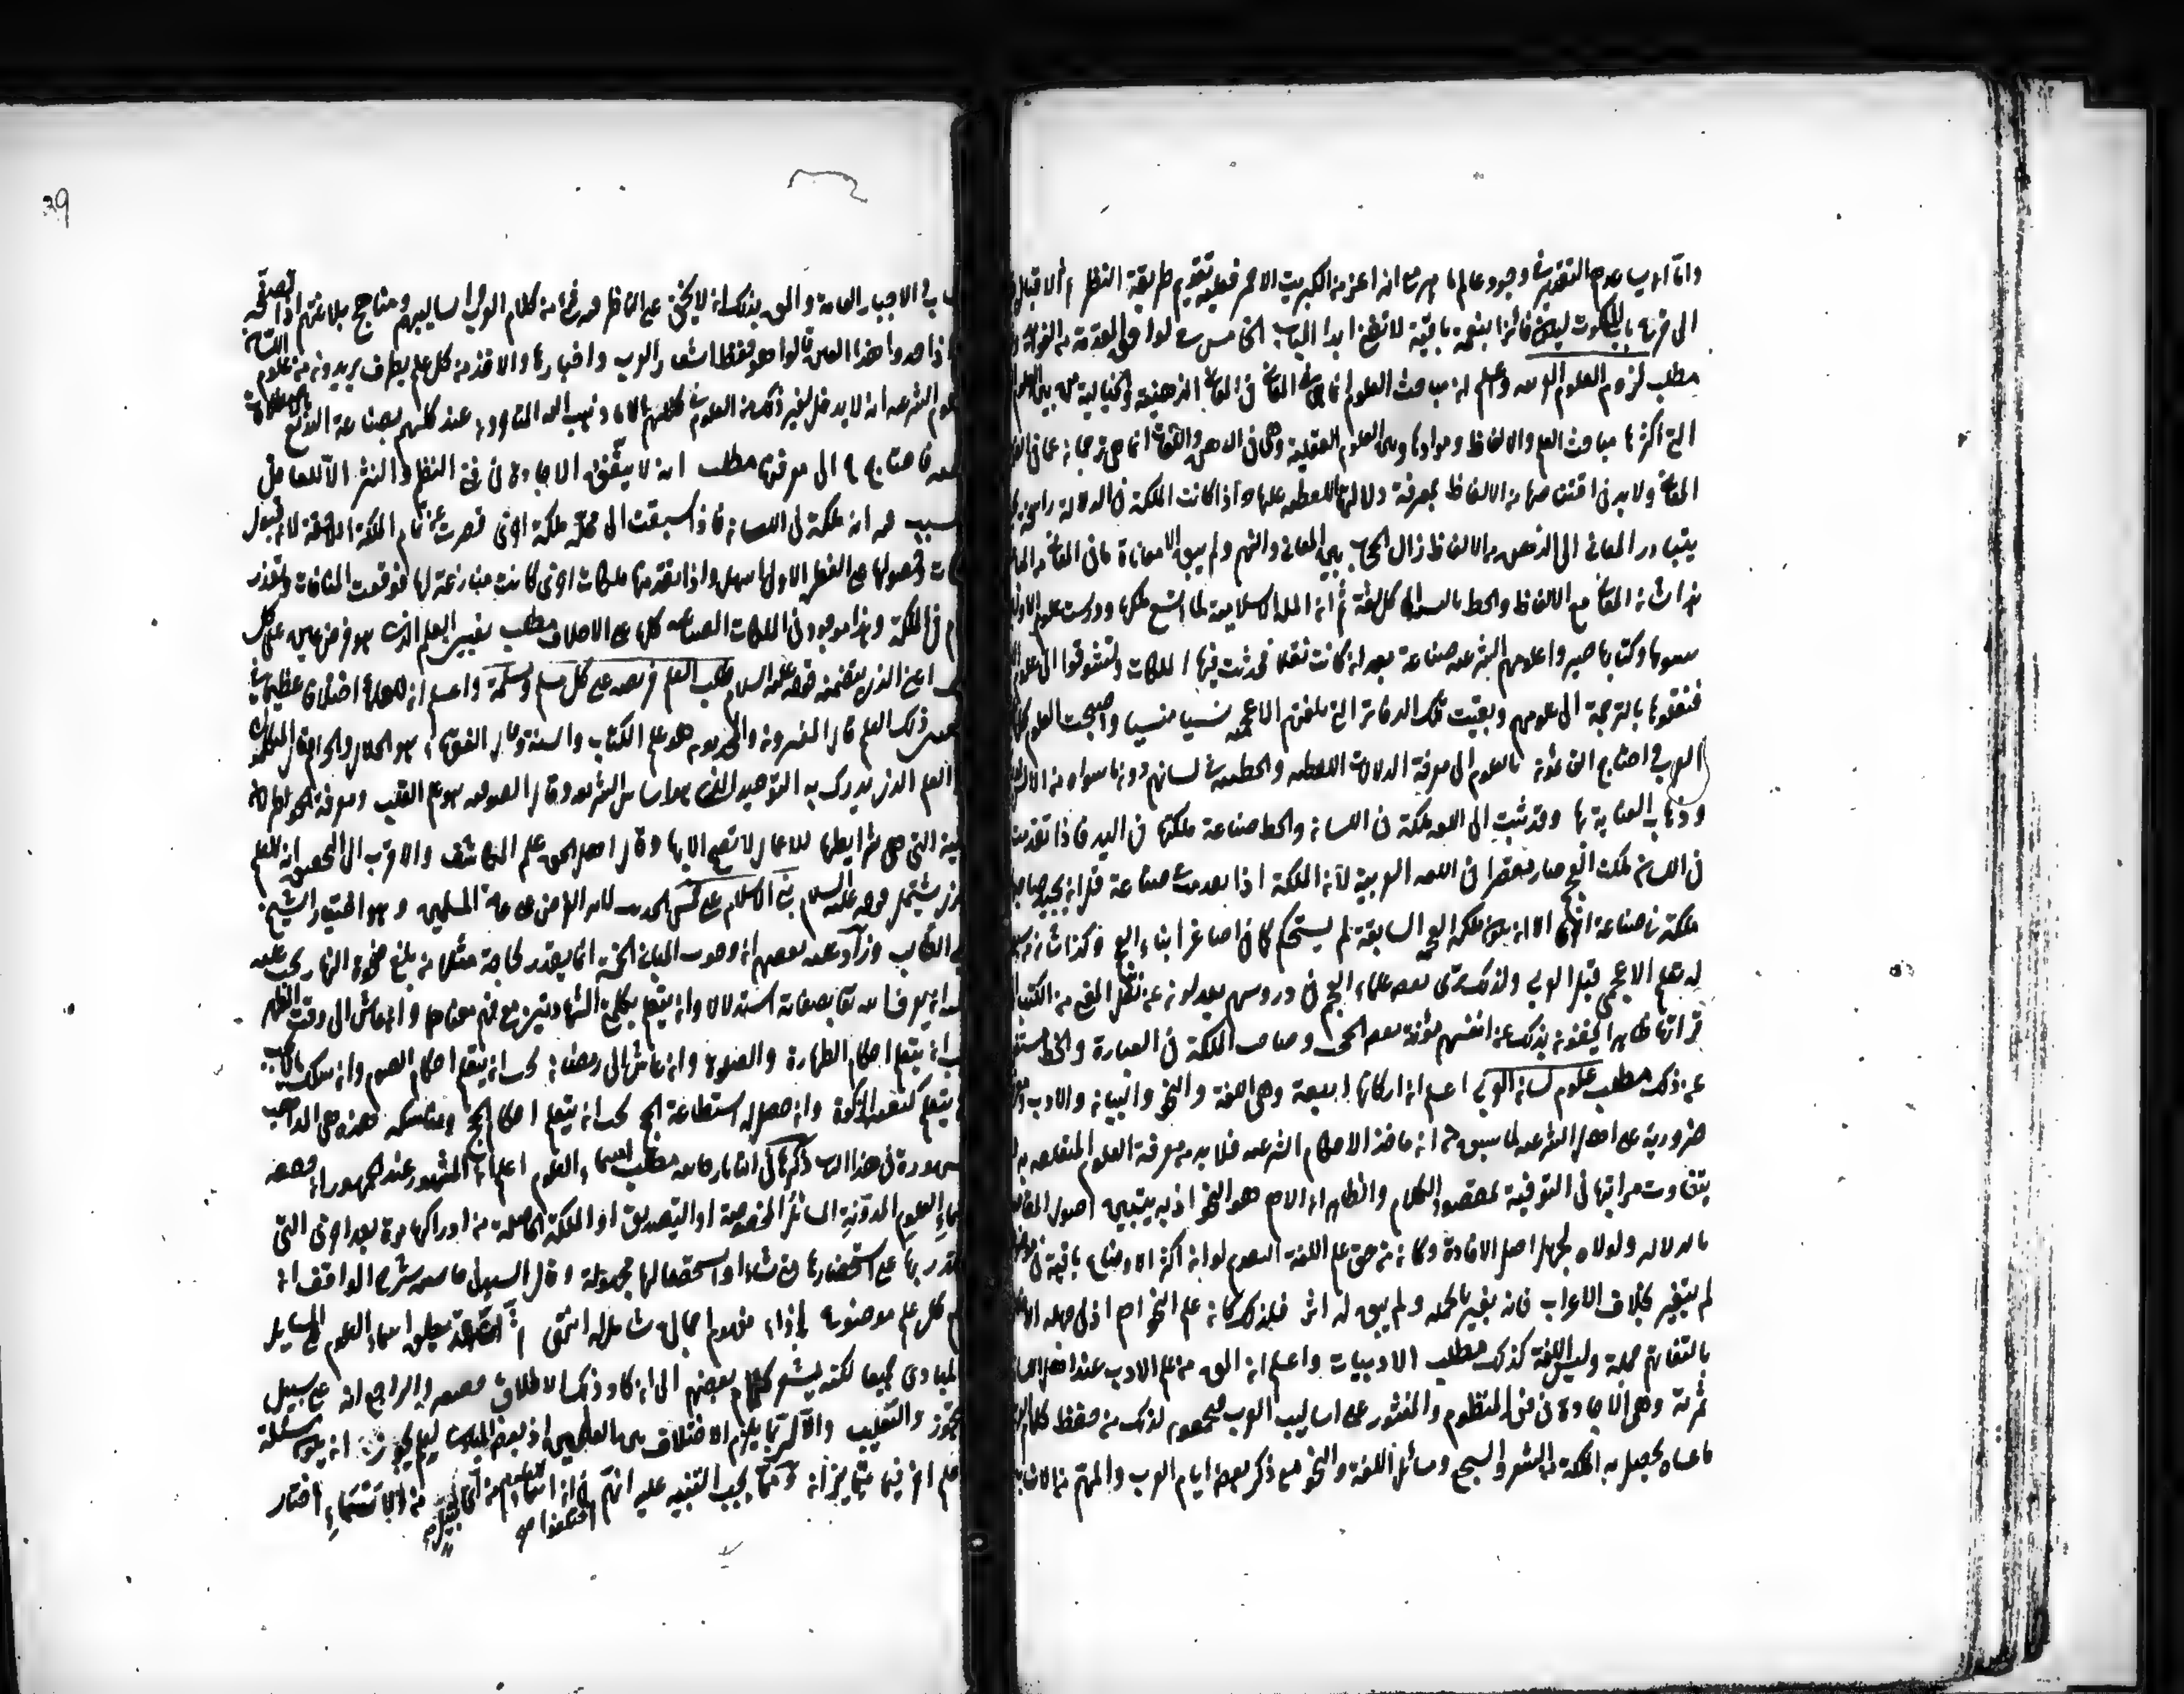 الى قرعها باب الملكوت ليكون فائزا بنعمة باقية لا تنقطع ابدا الباب الخامس في لواحق المقدمة من الفوائد
مطلب لزوم العلوم العربية واعلم ان مباحث العلوم انما هي في المعاني الذهنية والخيالية من بين العلوم
التي اكثرها مباحث العلم والالفاظ وموادها وبين العلوم العقلية وهي في الذهن واللغات انما هي ترجمان عما في
المعاني ولا بد في اقتناصها من الالفاظ بمعرفة دلالتها اللفظية عليها واذا كانت الملكة في الدلالة راسخة
يتبادر المعاني الى الذهن من الالفاظ زال الحجاب بين المعاني والفهم ولم يبق الا معاناة ما في المعاني من
هذا شان المعاني مع الالفاظ والخط بالنسبة الى كل لغة ثم ان الملة الاسلامية لما اتسع ملكها ودرست علوم الاولين
وكتابها صيروا علومهم الشرعية صناعة بعد ان كانت نقلا فحدثت فيها الملكات وتشوقوا الى علوم
فنقلوها بالترجمة الى علومهم وبقيت تلك الدفاتر التي بلغتهم الاعجمية نسيا منسيا واصبحت العلوم كلها
العرب فاحتاج القائمون بالعلوم الى معرفة الدلالات اللفظية والخطية في لسانهم دون ما سواه من الالسن
وذهاب العناية بها وقد ثبت ان اللغة ملكة في اللسان والخط صناعة ملكتها في اليد فاذا تقدمت
في اللسان ملكة العجمة صار مقصرا في اللغة العربية لان الملكة اذا تقدمت في صناعة قل ان يجيد صاحبها
ملكة في صناعة اخرى الا ان يكون ملكة العجمة السابقة لم يستحكم كما في اصاغر ابناء العجم وكذا شان من
له تعلم الاعجمي قبل العربي ولذلك ترى بعض علماء العجم في دروسهم يعدلون عن نقل المعنى من الكتب
قراءتها ظاهرا يخففون بذلك عن انفسهم مؤنة بعض الحجب وصاحب الملكة في العبارة والخط مستغن
عن ذلك مطلب علوم لسان العربي اعلم ان اركانها اربعة وهي اللغة والنحو والبيان والادب
ضرورية على اهل الشرعية لما سبق من ان ماخذ الاحكام الشرعية فلا بد من معرفة العلوم المتعلقة به
يتفاوت مراتبها في التوفية بمقصود الكلام والظاهر ان الاهم هو النحو اذ به يتبين اصول المقاصد
بالدلالة ولولاه لجهل اصل الافادة وكان من حق علم اللغة التقدم لولا ان اكثر الاوضاع باقية في
لم يتغير بخلاف الاعراب فانه يتغير بالجملة ولم يبق له اثر فلذلك كان علم النحو اهم اذ في جهله الاخلال
بالتفاهم جملة وليس اللغة كذلك مطلب الادبيات واعلم ان المق من علم الادب عند اهل اللسان
ثمرته وهي الاجادة في فني المنظوم والمنثور على اساليب العرب فيجمعون لذلك من حفظ كلام العرب
ما عساه يحصل به الملكة من الشعر والسجع ومسائل اللغة والنحو مع ذكر بعض ايام العرب والمهم من الانساب
39
والاخبار العامة والمق بذلك ان لا يخفى على الناظر فيه شئ من كلام العرب واساليبهم ومناحي بلاغتهم اذا تصفحه
اذا حدوا هذا الفن قالوا هو حفظ اشعار العرب واخبارها والاخذ من كل علم بطرف يريدون من علوم اللسان
مطلب انه لا يتفق الاجادة في فني النظم والنثر الا للاقل
السبب فيه انه ملكة في اللسان فاذا سبقت الى محله ملكة اخرى قصرت عن تمام الملكة اللاحقة لان قبول
وحصولها على الفطرة الاولى اسهل واذا تقدمتها ملكات اخرى كانت منازعة لها فوقعت المنافات وتعذر
في الملكة وهذا موجود في الملكات الصناعية كلها على الاطلاق مطلب تعيين العلم الذي هو فرض عين على كل
اعني الذي يتضمنه قوله عليه السلام طلب العلم فريضة على كل مسلم ومسلمة واعلم ان للعلماء اختلافا عظيما في
ذلك العلم قال المفسرون والمحدثون هو علم الكتاب والسنة وقال الفقهاء هو الحلال والحرام وقال المتكلمون
العلم الذي يدرك به التوحيد الذي هو اساس الشريعة وقال الصوفية هو علم القلب ومعرفة الخواطر
التي هي شرايطها للاعمال لا تصح الا بها وقال اهل الحق علم المكاشفة والاقرب الى التحقيق انه العلم
يشتمل قوله عليه السلام بني الاسلام على خمس الحديث لانه الفرض على عامة المسلمين وهو اختيار الشيخ
ابي طالب وزاد عليه بعضهم ان وجوب المباني الخمسة انما يقدر بحاجة مثلا من بلغ ضحوة النهار يجب عليه
ان يعرف الله تعالى بصفاته استدلالا وان يتعلم بكلمتي الشهادتين مع فهم معناهما وان عاش الى وقت الظهر
يجب ان يتعلم احكام الطهارة والصلوة وان عاش الى رمضان يجب ان يتعلم احكام الصوم وان ملك مالا
يتعلم كيفية الزكوة وان حصل له استطاعة الحج يجب ان يتعلم احكام الحج ومناسكه هذه هي المذاهب
المشهورة في هذا الباب مطلب اسماء العلوم اعلم ان المشهور عند الجمهور ان حقيقة
اسماء العلوم المدونة المسائل المخصوصة او التصديق او الملكة الحاصلة من ادراكها مرة بعد اخرى التي
تقتدر بها على استحضارها متى شاء او استحصالها مجهولة وقال السيد في حاشية شرح المواقف ان
اسم كل علم موضوع بازاء مفهوم اجمالي شامل له انتهى ثم انه قد يطلق اسماء العلوم على المسايل
والمبادي جميعا لكنه يشعر كلام بعضهم الى ان ذلك الاطلاق حقيقة والراجح انه على سبيل
التجوز والتغليب والا لربما يلزم الاختلاط بين العلمين اذ بعض المبادي لعلم يجوز ان يكون مسئلة
من علم آخر فيما يتمايزان ومما يجب التنبيه عليه انهم اختلفوا في ان اسماء العلوم من اي قبيل من الاسماء اختار